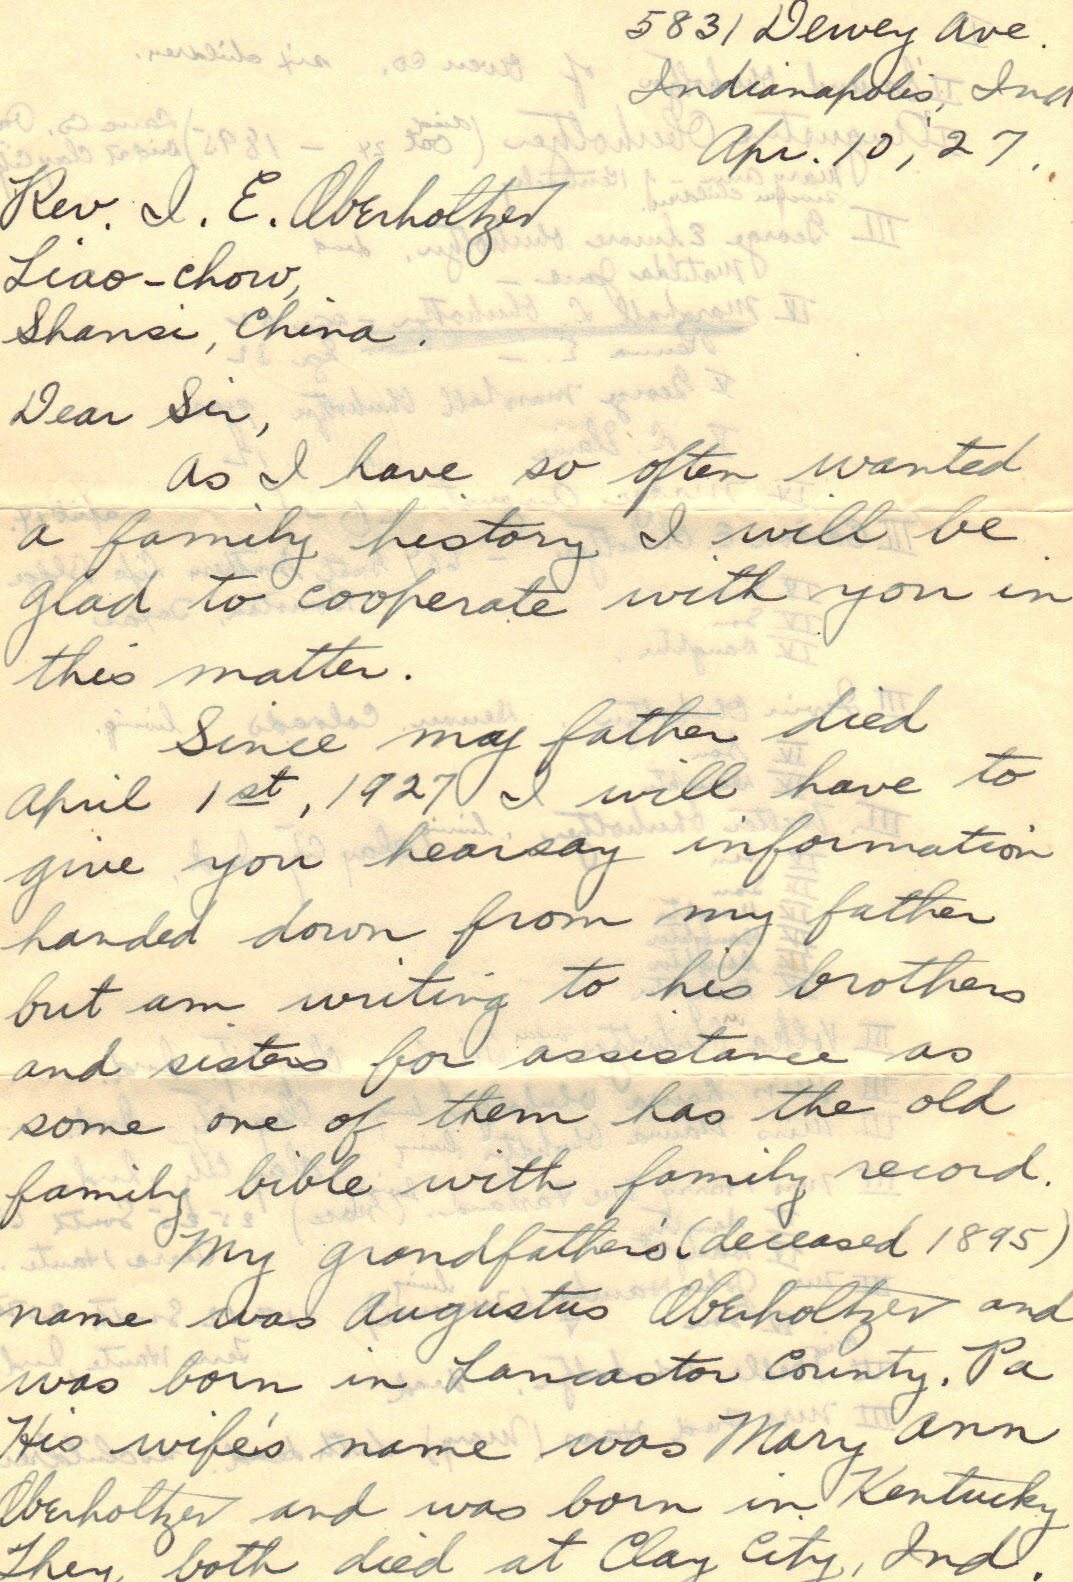 5831 Dewey Ave.
Indianapolis, Ind
Apr. 10, '27.
Rev. I. E. Oberholtzer
Liao-chow,
Shansi, China.
Dear Sir,
As I have so often wanted
a family history I will be
glad to cooperate with you in
this matter.
Since my father died
April 1st, 1927 I will have to
give you hearsay information
handed down from my father
but am writing to his brothers
and sisters for assistance as
some one of them has the old
family bible with family record.
My grandfather's (deceased 1895)
name was Augustus Oberholtzer and
was born in Lancastor County, Pa
His wife's name was Mary Ann
Oberholtzer and was born in Kentucky
They both died at Clay City, Ind.